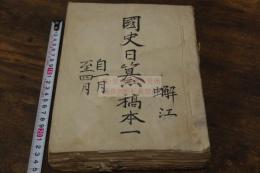 國史日纂稿本一
自一月
至四月
蠏江